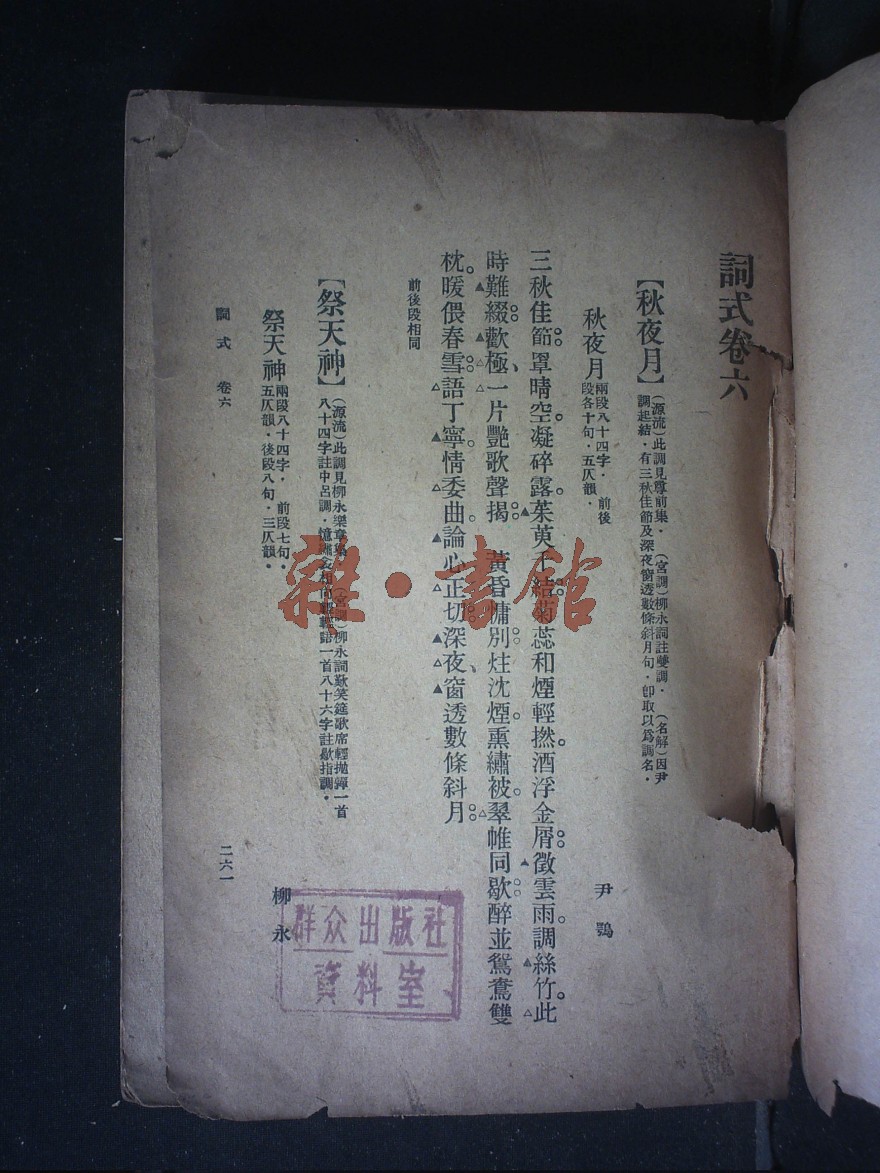 詞式卷六
【秋夜月】
(源流)此調見尊前集．　(宮調)柳永詞註雙調．　(名解)因尹
調起結．有三秋佳節及深夜窗透數條斜月句．卽取以爲調名．
秋夜月
兩段八十四字．前後
段各十句．五仄韻．
尹鶚
三秋佳節罩晴空凝碎露茱萸千結菊蕊和煙輕撚酒浮金屑徵雲雨調絲竹此
時難綴歡極一片艷歌聲揭　黃昏慵別炷沈煙熏繡被翠帷同歇醉並鴛鴦雙
枕暖偎春雪語丁寧情委曲論心正切深夜窗透數條斜月
前後段相同
【祭天神】
(源流)此調見柳永樂章集．　(宮調)柳永詞歎笑筵歌席輕拋嚲一首
八十四字註中呂調．憶繡衾相向輕輕語一首八十六字註歇指調．
祭天神
兩段八十四字．前段七句．
五仄韻．後段八句．三仄韻．
柳永
詞式　卷六
二六一
群众出版社
資料室
雜·書館